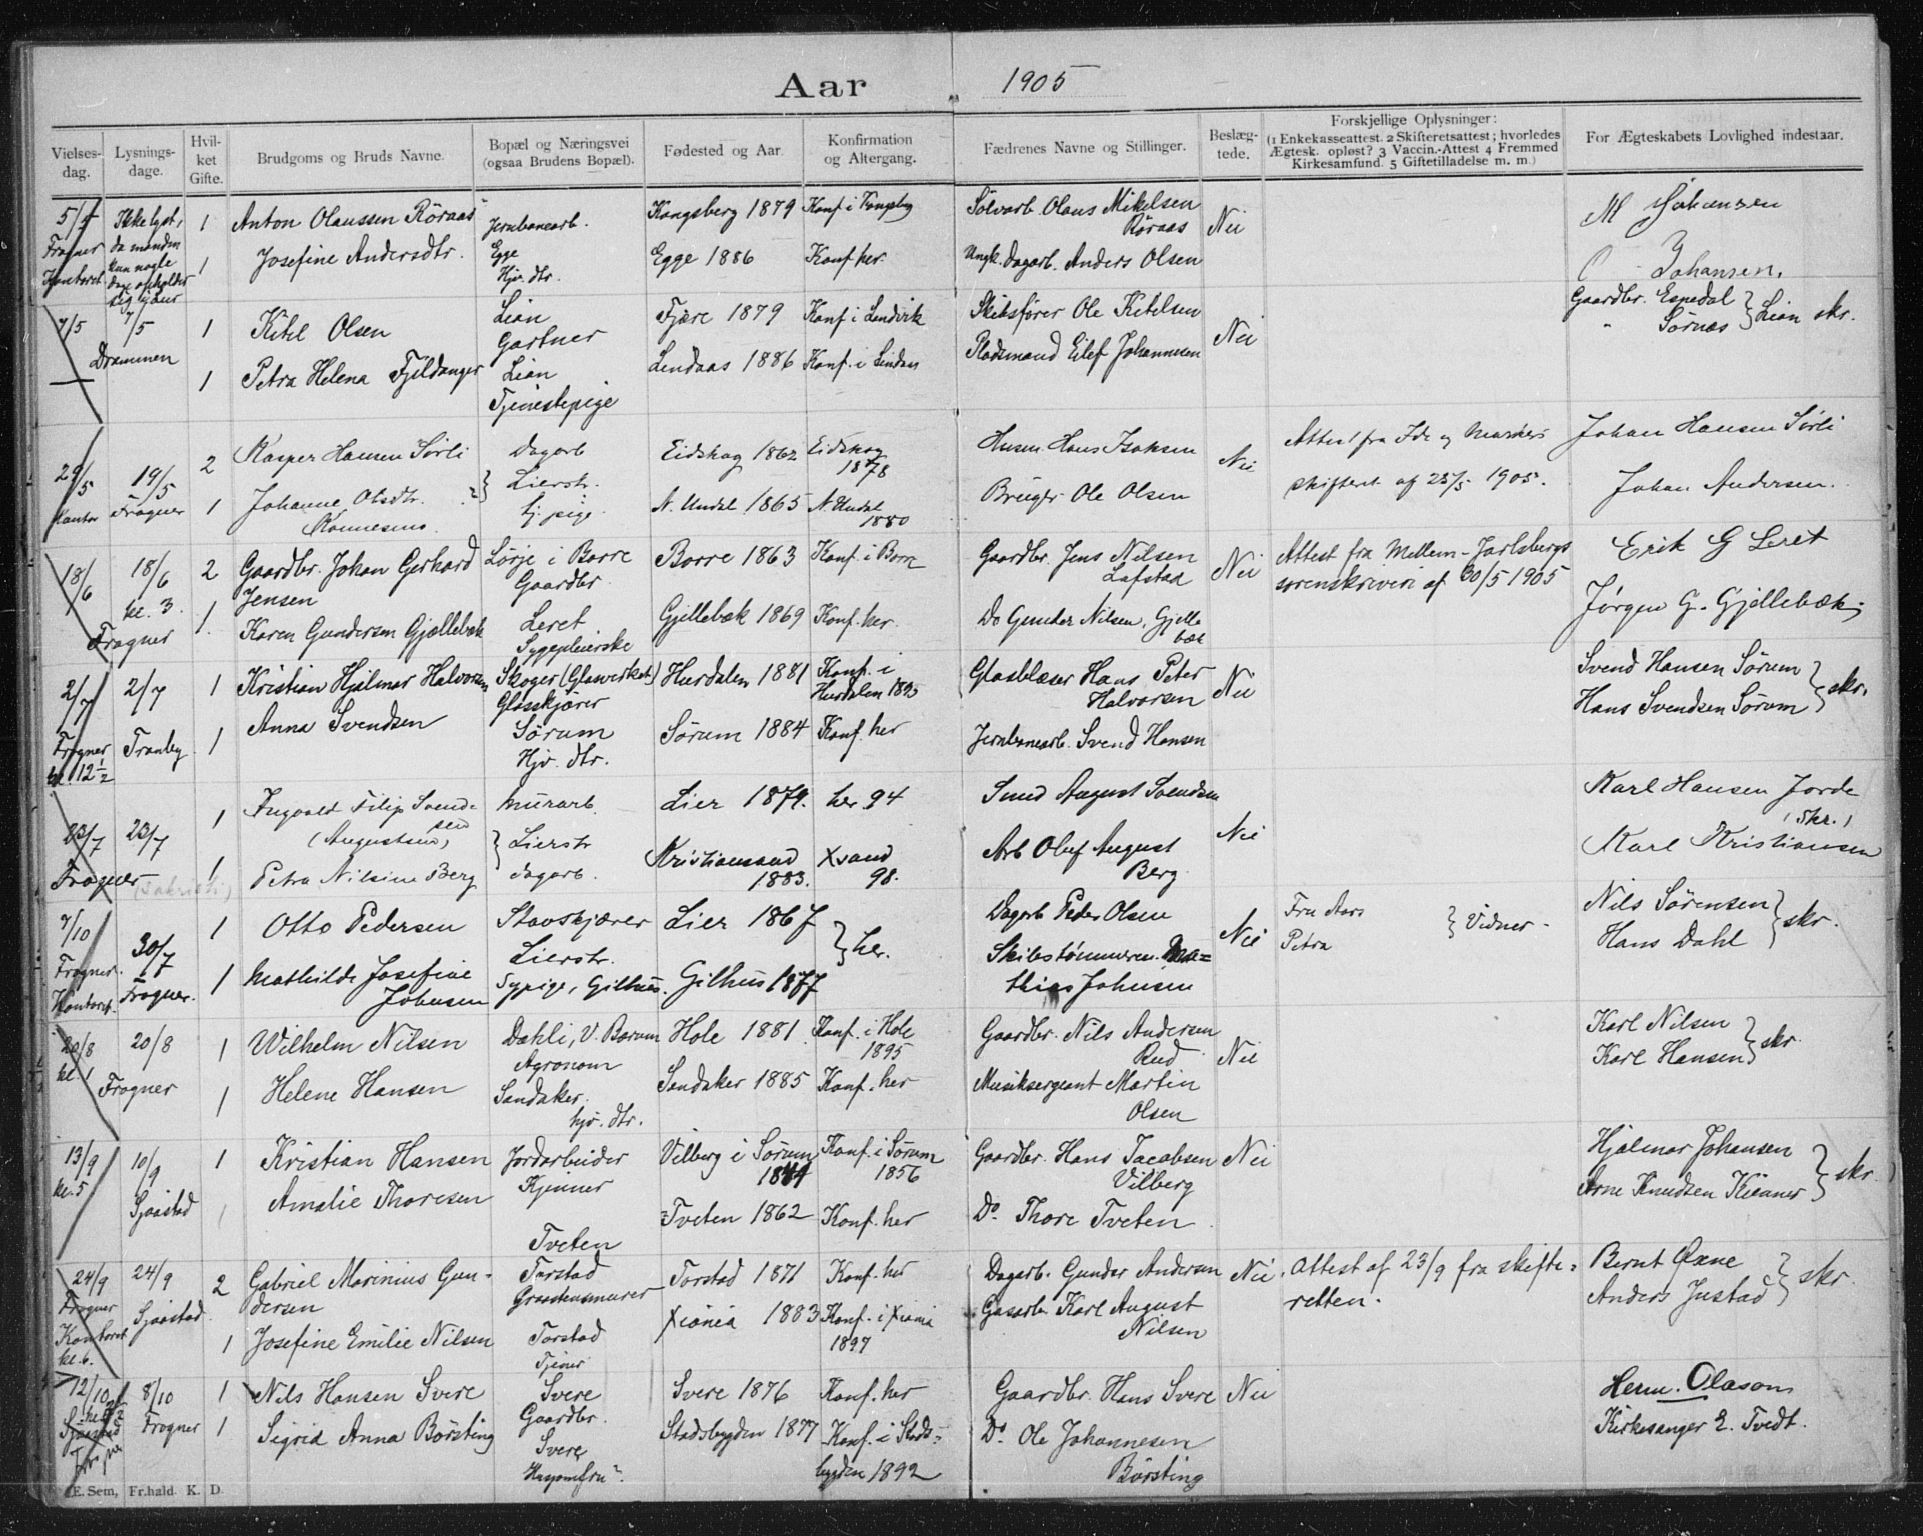 Aar 1905
Vielses-dag.
Lysnings-dage.
Hvil-ket Gifte.
Brudgoms og Bruds Navne.
Bopæl og Næringsvei (ogsaa Brudens Bopæl).
Fødested og Aar.
Konfirmation og Altergang.
Fædrenes Navne og Stillinger.
Beslæg-tede.
Forskjellige Oplysninger:
(1 Enkekasseattest. 2 Skifteretsattest; hvorledes
Ægtesk. opløst? 3 Vaccin.-Attest 4 Fremmed
Kirkesamfund. 5 Giftetilladelse m. m.)
For Ægteskabets Lovlighed indestaar.
5/5 Frogner Kontoret
Ikke lyst, da manden kun nogle dage opholder sig hjem
1 Anton Olaussen Röraas
Jernbanearb.
Kongsberg 1879
Konf. i Kongsbg
Sölvarb. Olaus Mikelsen Röraas
Nei
M Johansen
1 Josefine Andersdtr.
Egge Hjv. dtr.
Egge 1886
Konf. her.
Ungk. Dagarb. Anders Olsen
O Johansen.
7/5
7/5 Drammen
1 Kitil Olsen
Lian Gartner
Fjære 1879
Konf. i Landvik
Skibsfører Ole Kitilsen
Nei
Gaardbr. Espedal
" Sörnæs } Lian skr.
1 Petra Helena Fjeldanger
Lian Tjenestepige
Lindaas 1886
Konf. i Lindaas
Pladsmand Eilef Johannesen
29/5 Kontor
19/5 Frogner
2 Kasper Hansen Sörli
Dagarb
Eidskog 1862
Eidskog 1878
Husm. Hans Isaksen
Nei
Attest fra Ide og Markers
skifteret af 25/5 1905.
Johan Hansen Sörli
1 Johanne Olsdtr.
} Lierstr.
tj. pige
N. Undal 1865
N. Undal 1880
Bruger Ole Olsen
Johan Andersen.
18/6
18/6 kl. 3. Frogner
2 Gaardbr. Johan Gerhard Jensen
Lørje i Borre Gaardbr.
Borre 1863
Konf. i Borre
Gaardbr. Jens Nilsen Lafstad
Nei
Attest fra Mellem-Jarlsbergs
sorenskriveri af 30/5 1905
Erik G Leret
1. Karen Gundersen Gjellebæk
Leret Sygepleierske
Gjellebæk 1869
Konf. her.
Do Gunder Nilsen, Gjellebæk
Jørgen G. Gjellebæk
2/7 Frogner kl. 12 1/2
2/7 Tranby
1 Kristian Hjalmar Halvorsen
Skoger (Glasverket) Glasskjærer
Hurdalen 1881
Konf. i Hurdalen 1895
Glasblæser Hans Peter Halvorsen
Nei
Svend Hansen Sørum
Hans Svendsen Sørum } skr.
1 Anna Svendsen
Sørum Hjv. dtr.
Sørum 1884
Konf. her
Jernbanearb. Svend Hansen
23/7 Frogner
23/7
1 Ingvald Filip Svendsen (Augustsen)
Murarb.
Lier 1879.
her 94
Smed August Svendsen
Nei
Karl Hansen Jorde
(skr.)
1 Petra Nilsine Berg
} Lierstr dagarb.
Kristiansand 1883.
Xsand 98.
Arb Oluf August Berg
Karl Kristiansen
7/10 Frogner. Kontoret.
30/7 Frogner.
1 Otto Pedersen
Stavskjærer Lierstr.
Lier 1867
} her.
Dagarb Peder Olsen
Nei
Fru Aars
Petra } Vidner -
Nils Sörensen
Hans Dahl } skr.
1 Mathilde Josefine Johnsen
Sypige, Gilhus.
Gilhus 1877
Skibstømmerm. Mathias Johnsen
20/8 kl. 1
20/8 Frogner
1 Wilhelm Nilsen
Dahli, V. Bærum Agronom
Hole 1881
Konf. i Hole 1895
Gaardbr. Nils Andersen Rud
Nei
Karl Nilsen
Karl Hansen } skr.
1 Helene Hansen
Sandaker. hjv. dtr.
Sandaker 1885
Konf. her
Musiksergeant Martin Olsen
13/9 kl. 5
10/9 Sjaastad
1 Kristian Hansen
Jordarbeider Kjenner
Vilberg i Sørum 1841
Konf. i Sørum 1856
Gaardbr. Hans Jacobsen Vilberg
Nei
Hjalmar Johansen
Arne Knudsen Kieaner } skr.
1 Amalie Thoresen
Tveten
Tveten 1862
Konf. her
Do. Thore Tveten
24/9 Frogner Kontoret kl. 6.
24/9 Sjaastad.
2 Gabriel Marinius Gundersen
Torstad Graastensmurer
Torstad 1871
Konf. her
Dagarb. Gunder Andersen
Nei
Attest af 23/9 fra skifte=
retten.
Bernt Øxne
Anders Justad } skr.
1 Josefine Emilie Nilsen
Torstad Tjener
Xiania 1883
Konf. i Xiania 1897
Gasarb. Karl August Nilsen
12/10 Sjaastad
8/10 Frogner
1 Nils Hansen Svere
Svere Gaardbr.
Svere 1876
Konf. her
Gaardbr. Hans Svere
Nei
Herm. Olason
1 Sigrid Anna Børsting
Svere
Stadsbygden 1877
Konf. i Stadsbygden 1892
Do. Ole Johannesen Børsting
Kirkesanger E. Tvedt.
E. Sem, Fr.hald. K. D.